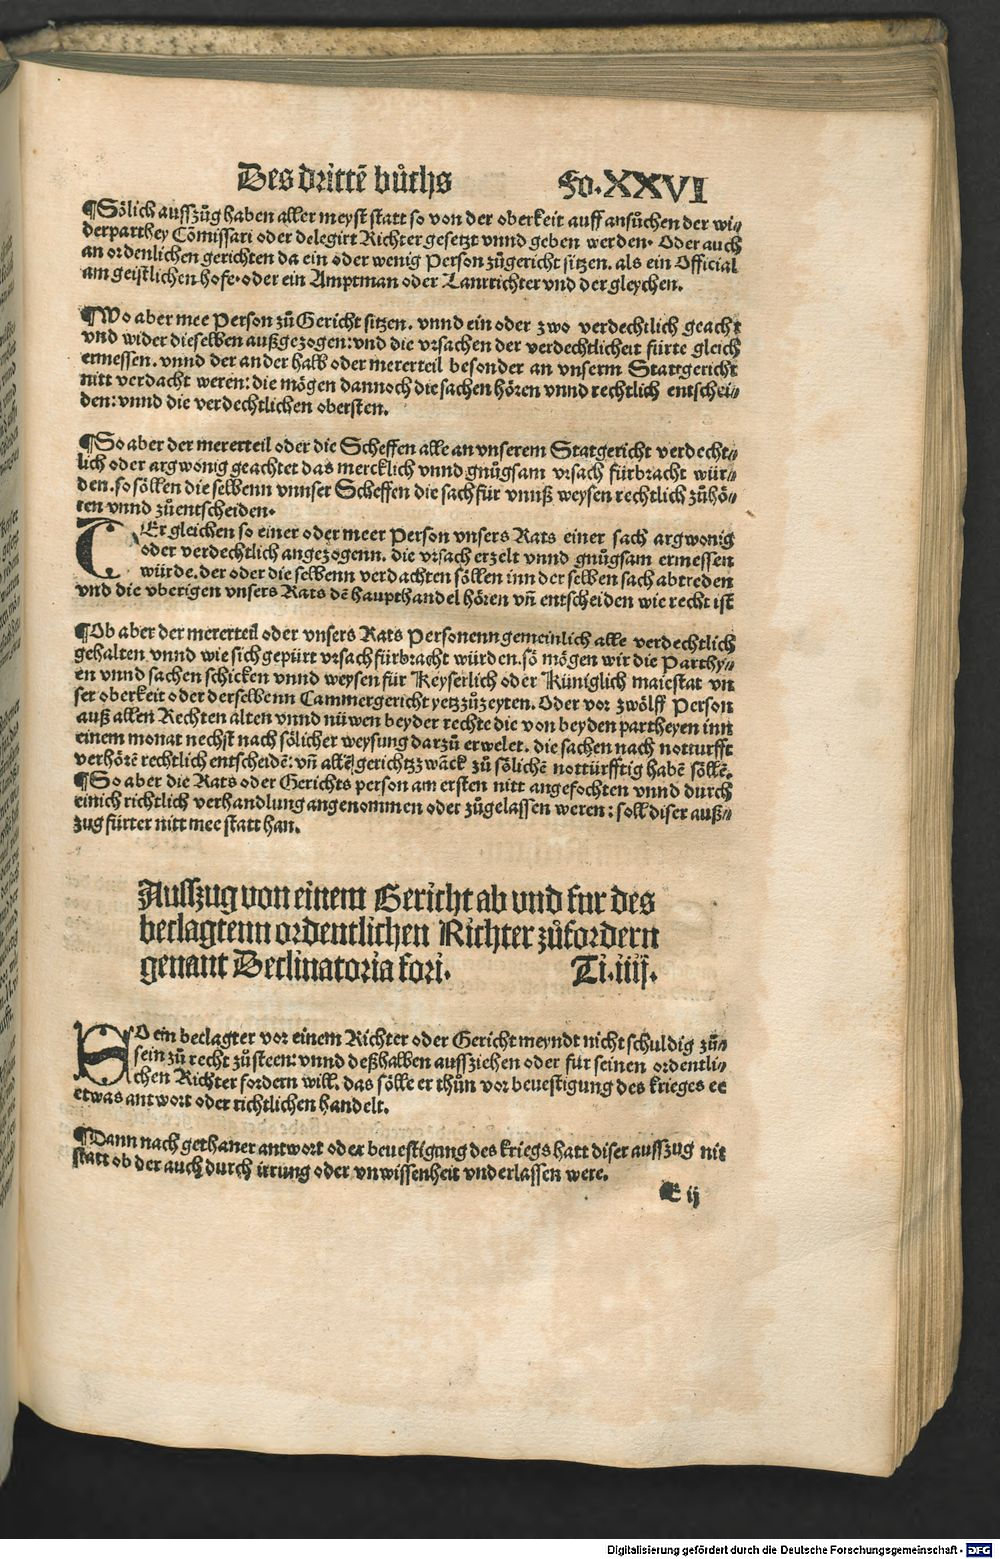 Des drittē bůchs Fo.XXVI
¶Sölich auſſzüg haben aller meyſt ſtatt ſo von der oberkeit auff anſůchen der wi⸗
derparthey Cōmiſſari oder delegirt Richter geſetzt vnnd geben werden. Oder auch
an ordenlichen gerichten da ein oder wenig Perſon zůgericht ſitzen. als ein Official
am geiſtlichen hofe. oder ein Amptman oder Lantrichter vnd der gleychen.
¶Wo aber mee Perſon zů Gericht ſitzen. vnnd ein oder zwo verdechtlich geacht
vnd wider dieſelben außgezogen: vnd die vrſachen der verdechtlicheit fürte gleich
ermeſſen. vnnd der ander halb oder mererteil beſonder an vnſerm Stattgericht
nitt verdacht weren: die mögen dannoch die ſachen hören vnnd rechtlich entſchei⸗
den: vnnd die verdechtlichen oberſten.
¶So aber der mererteil oder die Scheffen alle an vnſerem Statgericht verdecht⸗
lich oder argwönig geachtet das mercklich vnnd gnůgſam vrſach fürbracht wür⸗
den. ſo ſöllen die ſelbenn vnnſer Scheffen die ſach für vnnß weyſen rechtlich zůhö⸗
ren vnnd zůentſcheiden.
DEr gleichen ſo einer oder meer Perſon vnſers Rats einer ſach argwonig
oder verdechtlich angezogenn. die vrſach erzelt vnnd gnůgſam ermeſſen
würde. der oder die ſelbenn verdachten ſöllen inn der ſelben ſach abtreden
vnd die vberigen vnſers Rats dē haupthandel hören vñ entſcheiden wie recht iſt
¶Ob aber der mererteil oder vnſers Rats Perſonenn gemeinlich alle verdechtlich
gehalten vnnd wie ſich gepürt vrſach fürbracht würden. ſo mögen wir die Parthy⸗
en vnnd ſachen ſchicken vnnd weyſen für Keyſerlich oder Küniglich maieſtat vn
ſer oberkeit oder derſelbenn Cammergericht yetzzůzeyten. Oder vor zwölff Perſon
auß allen Rechten alten vnnd nüwen beyder rechte die von beyden partheyen inn
einem monat nechſt nach ſölicher weyſung darzů erwelet. die ſachen nach notturfft
verhörē rechtlich entſcheidē: vñ allē gerichtzzwāck zů ſölichē nottürfftig habē ſöllē.
¶So aber die Rats oder Gerichts perſon am erſten nitt angefochten vnnd durch
einich richtlich verhandlung angenommen oder zůgelaſſen weren: ſoll diſer auß⸗
zug fürter nitt mee ſtatt han.
Auſſzug von einem Gericht ab vnd fur des
beclagtenn ordentlichen Richter zůfordern
genant Declinatoria fori. Ti.iiij.
SO ein beclagter vor einem Richter oder Gericht meyndt nicht ſchuldig zů⸗
ſein zů recht zů ſteen: vnnd deßhalben auſſziehen oder für ſeinen ordentli⸗
chen Richter fordern will. das ſölle er thůn vor beueſtigung des krieges ee
etwas antwort oder richtlichen handelt.
¶Dann nach gethaner antwort oder beueſtigung des kriegs hatt diſer auſſzug nit
ſtatt ob der auch durch irrung oder vnwiſſenheit vnderlaſſen were.
E ij
Digitalisierung gefördert durch die Deutsche Forschungsgemeinschaft - DFG